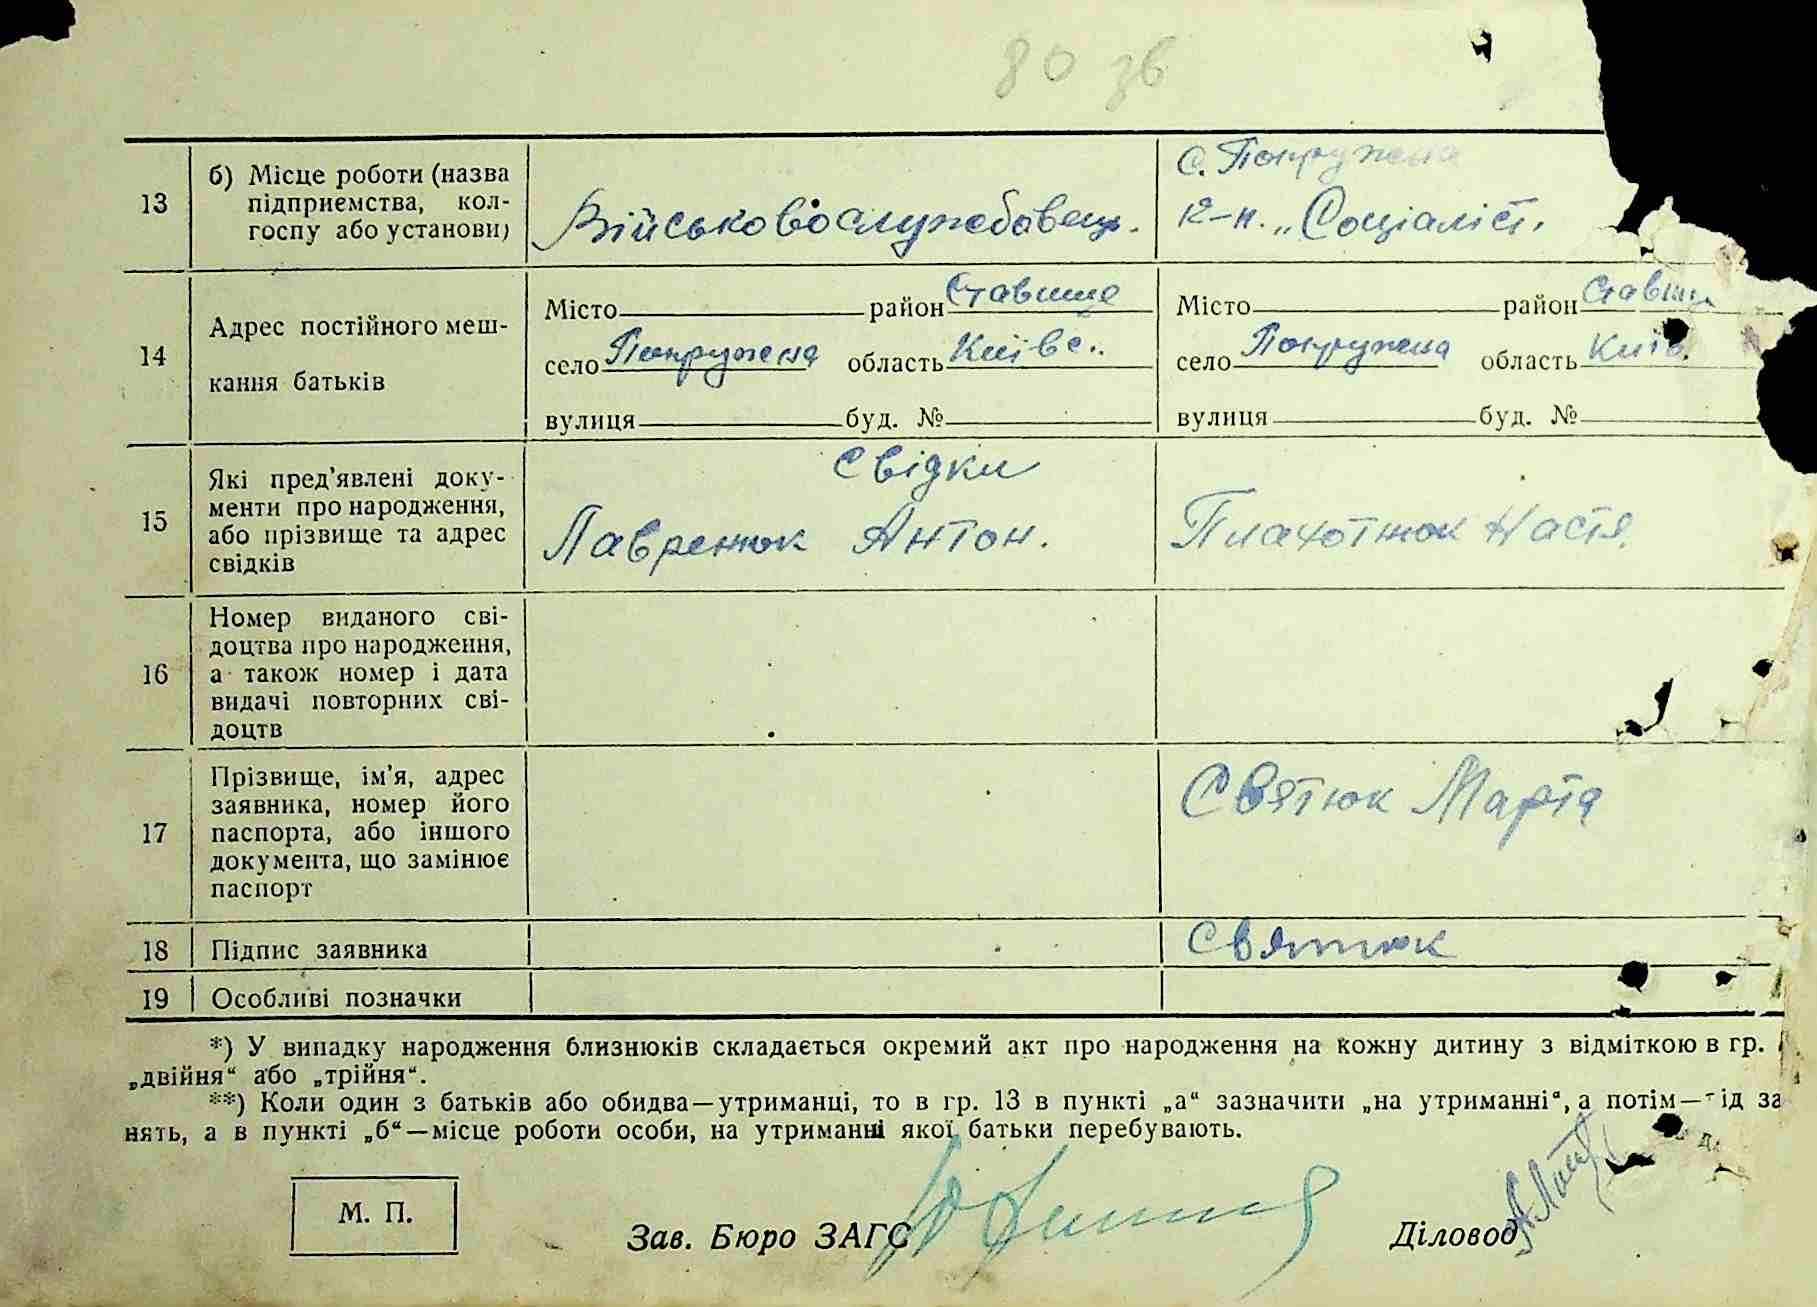 80 зв
13
б) Місце роботи (назва підприємства, колгоспу або установи)
Військовослужбовець.
с. Попружена
к-п. „Соціаліст.
14
Адрес постійного мешкання батьків
Місто район Ставище
село Попружена область Київс..
вулиця буд. №
Місто район Ставищ
село Попружена область Київ.
вулиця буд. №
15
Які пред'явлені документи про народження, або прізвище та адрес свідків
Свідки
Лавренюк Антон.
Плахотнюк Настя.
16
Номер виданого свідоцтва про народження, а також номер і дата видачі повторних свідоцтв
17
Прізвище, ім'я, адрес заявника, номер його паспорта, або іншого документа, що замінює паспорт
Святюк Марта
18
Підпис заявника
Святюк
19
Особливі позначки
*) У випадку народження близнюків складається окремий акт про народження на кожну дитину з відміткою в гр.
„двійня“ або „трійня“.
**) Коли один з батьків або обидва—утриманці, то в гр. 13 в пункті „а“ зазначити „на утриманні“, а потім— ід за
нять, а в пункті „б“—місце роботи особи, на утриманні якої батьки перебувають.
М. П.
Зав. Бюро ЗАГС
Діловод